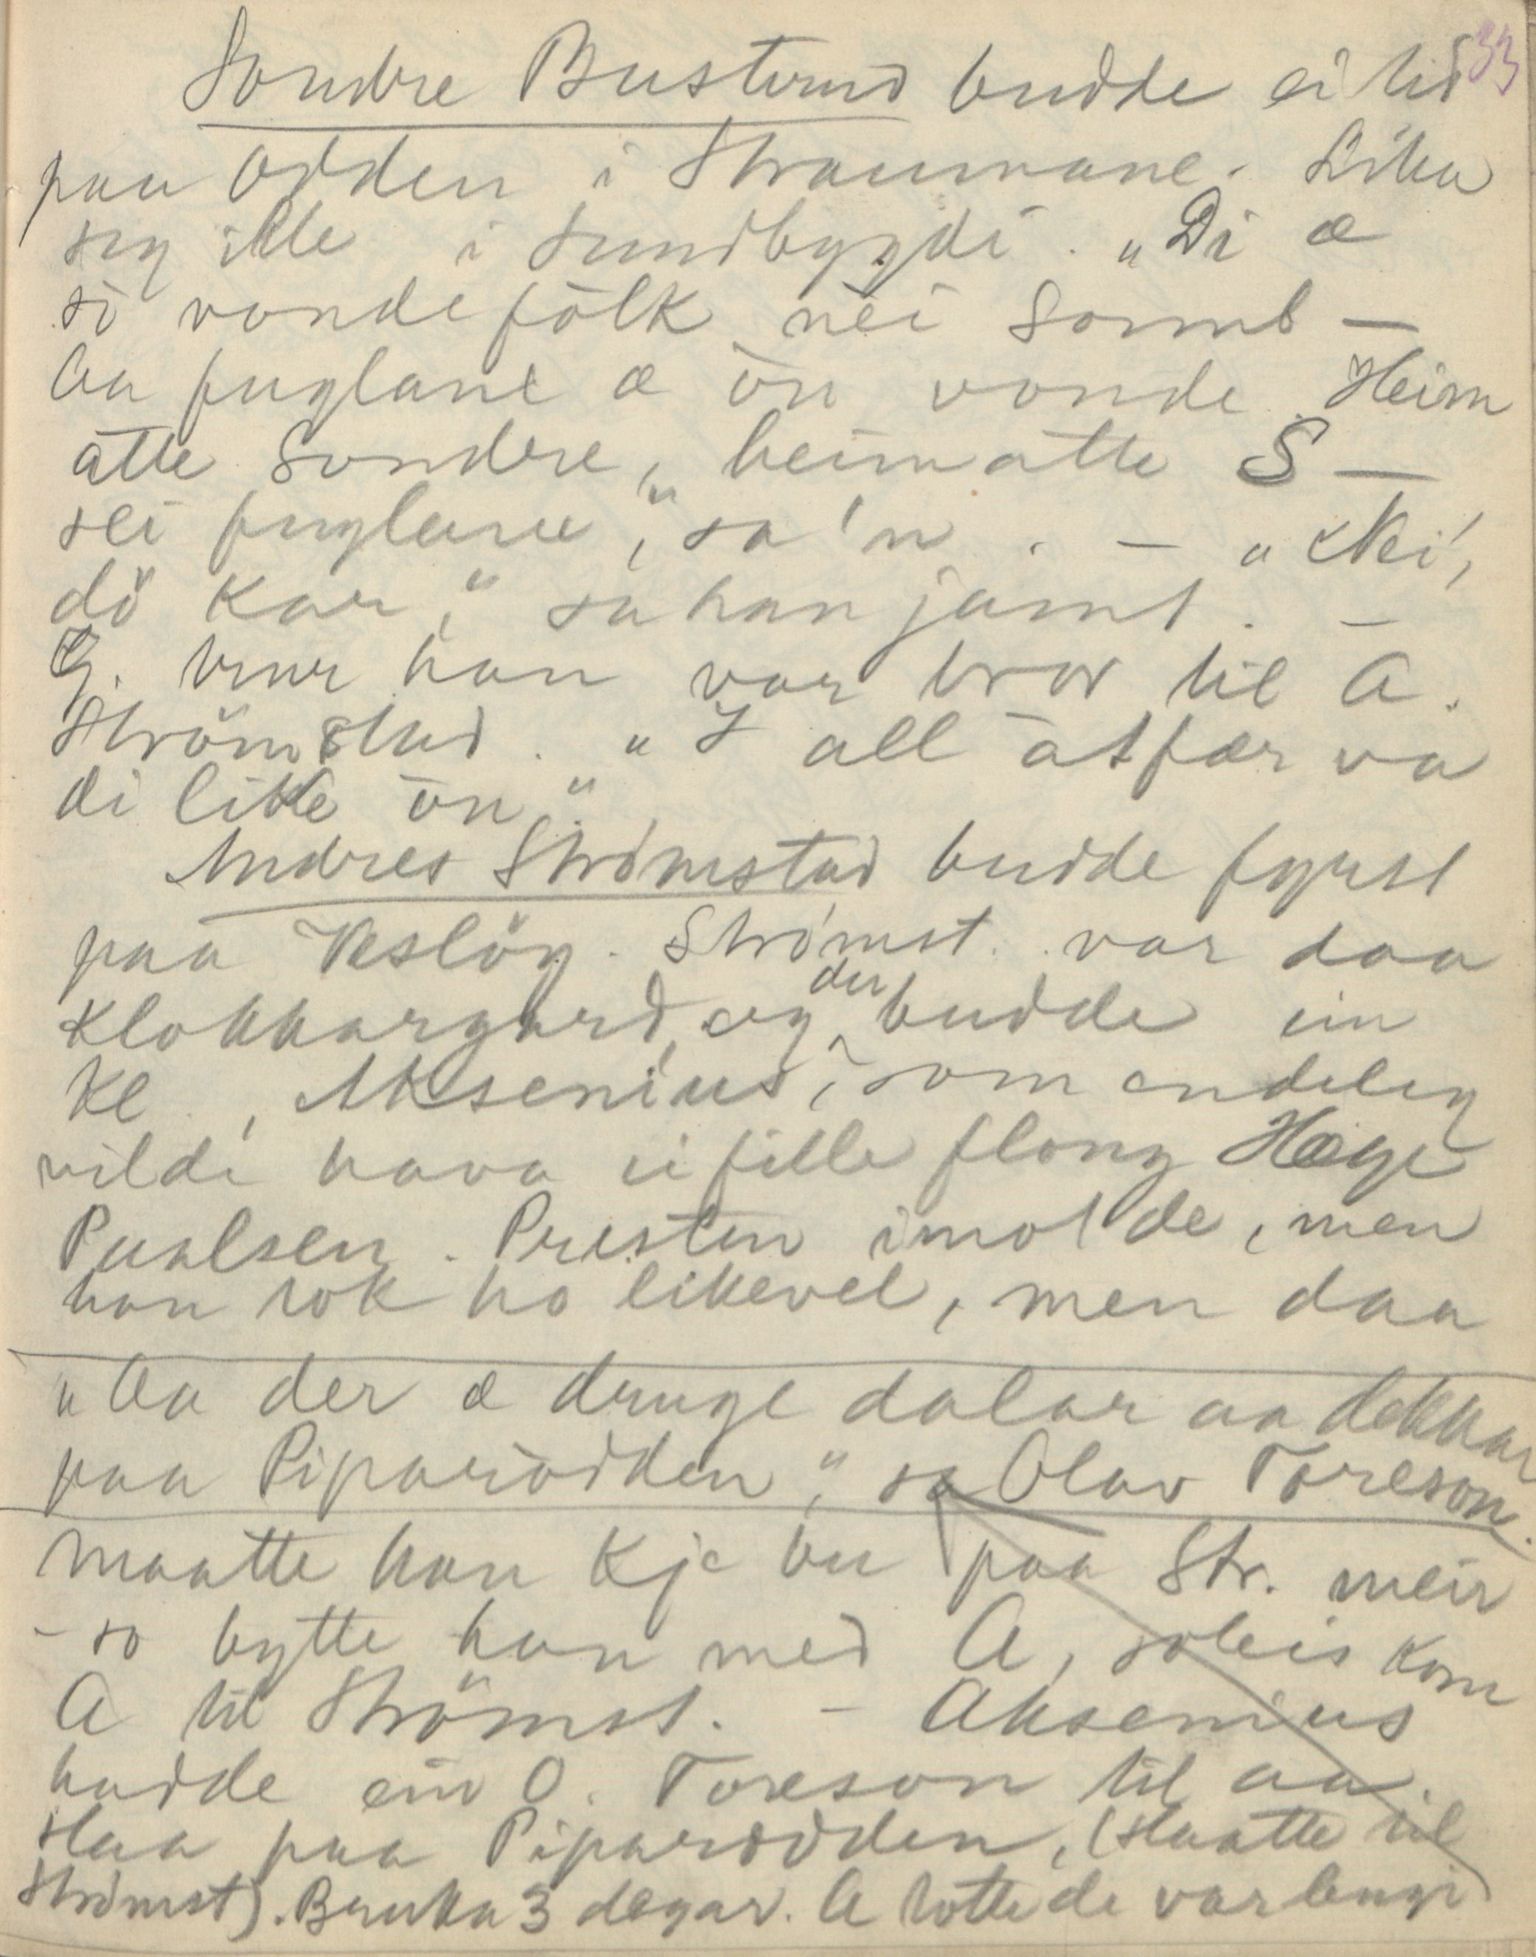 33
Sondre Busterud budde ei tid
paa Odden i Straumane. Lika
seg ille i Sundbygdi. „Di æ
so vonde fölk nei Sonnb —
Aa fuglane æ ön vonde. Heim
atte Sondre, heimatte S —
sei fuglane," sa'n. — „Nei,
dö kar," sa han jamt. —
G. trur han var bror til A.
Strömstad. „I all åtfær va
di like ön."
Andres Strömstad budde fyrst
paa Vesløy. Strömst. var daa
klokkargard, og der budde ein
kl , Aksenius, som endeleg
vilde hava ei fille flong Hæge
Paalsen. Presten imot de, men
han tok ho likevel, men daa
„Aa der æ druge dalar aa dekkar
paa Piparodden," sa Olav Toreson.
maatte han kje bu paa Str. meir
- so bytte han med A, soleis kom
A til Strömst. — Aksenius
hadde ein O. Toreson til aa
slaa paa Piparodden, (slaatte til
Strömst). Bruka 3 dagar. A totte de var lengi